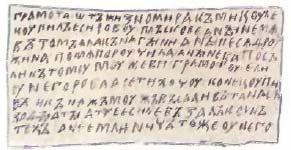 грамота ѡтъ жизномира къ микоуле
коупилъ еси робоу плъскове а ныне мѧ
въ томъ ѧла кънѧгыни а ныне сѧ дроу
жина по мѧ пороучила а ныне ка посъ
ли къ томоу моужеви грамотоу е ли
оу него роба а се ти хочоу коне коупивъ
и кънѧжъ моужъ въсадивъ та на съ
воды а ты атче еси не възалъ коунъ
техъ а не емли ничъто же оу него